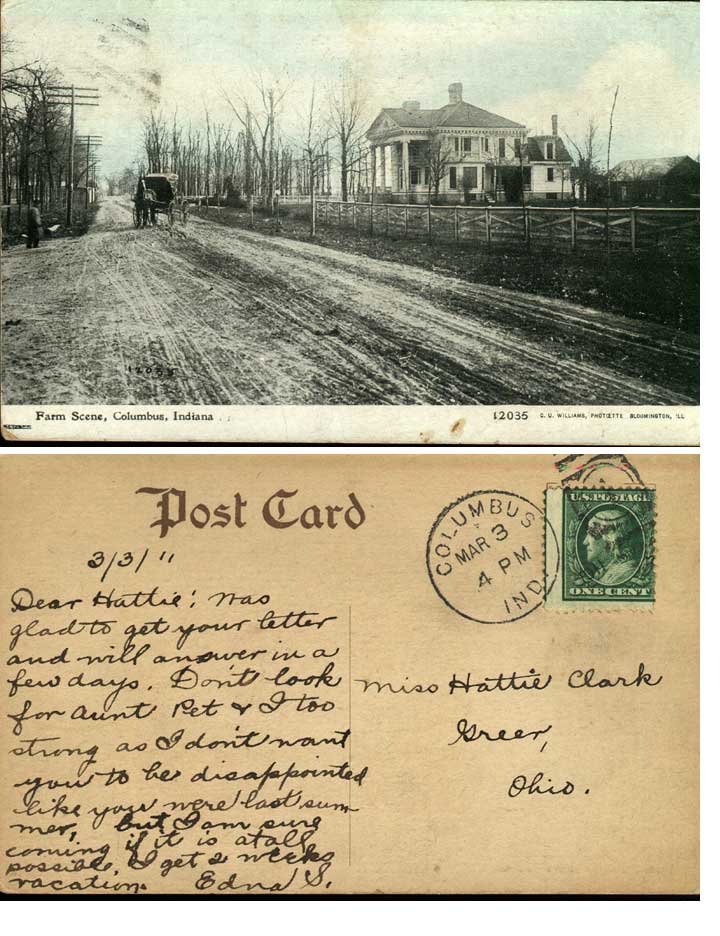 12035
Farm Scene, Columbus, Indiana
12035 C. U. WILLIAMS, PHOTOETTE BLOOMINGTON, ILL
Post Card
COLUMBUS
MAR 3
4 PM
IND.
U.S. POSTAGE
ONE CENT
3/3/11
Dear Hattie: Was
glad to get your letter
and will answer in a
few days. Don't look
for Aunt Pet & I too
strong as I don't want
you to be disappointed
like you were last sum
mer, but I am sure
coming if it is atall
possible, I get 2 weeks
vacation. Edna S.
Miss Hattie Clark
Greer,
Ohio.